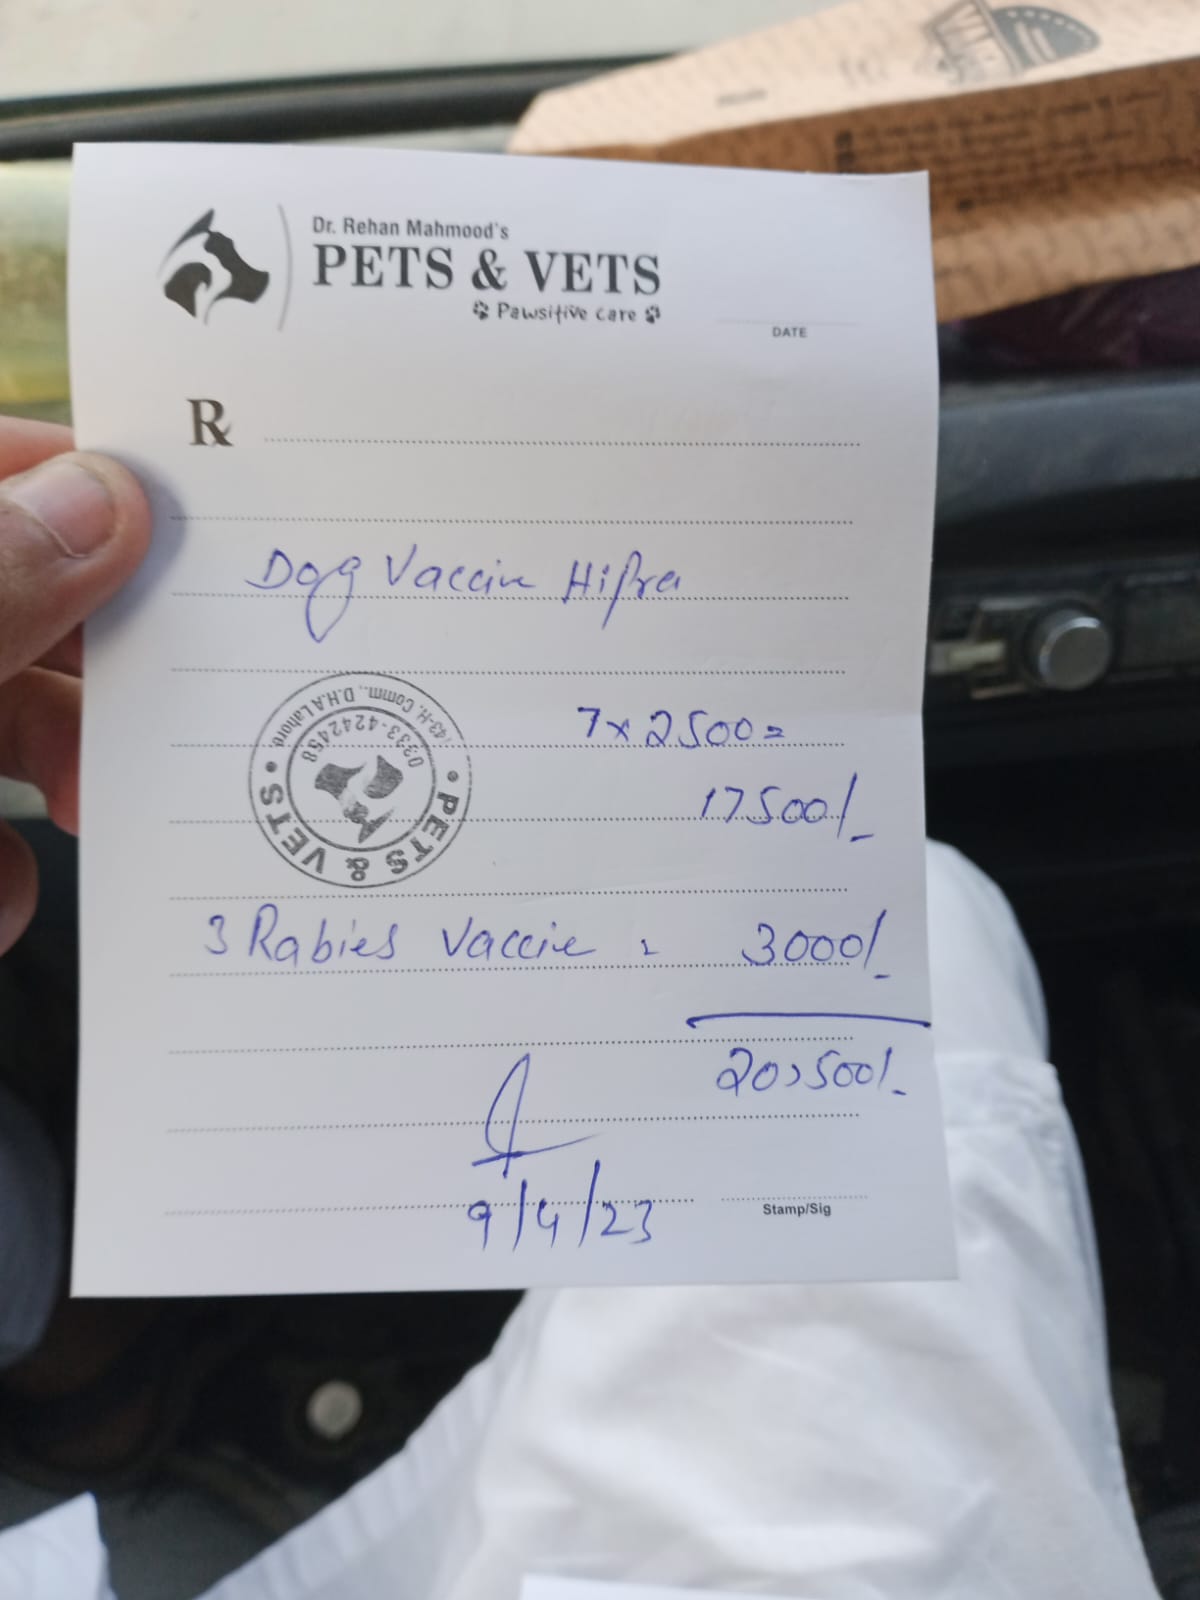 Dr. Rehan Mahmood's
PETS & VETS
Pawsitive care
DATE
R
Dog Vaccin Hipra
7 x 2500 =
17500/-
143-H. Comm.. D.H.A Lahore.
0333-4242458
• PETS & VETS •
3 Rabies Vaccie = 3000/-
20,500/-
9/4/23
Stamp/Sig